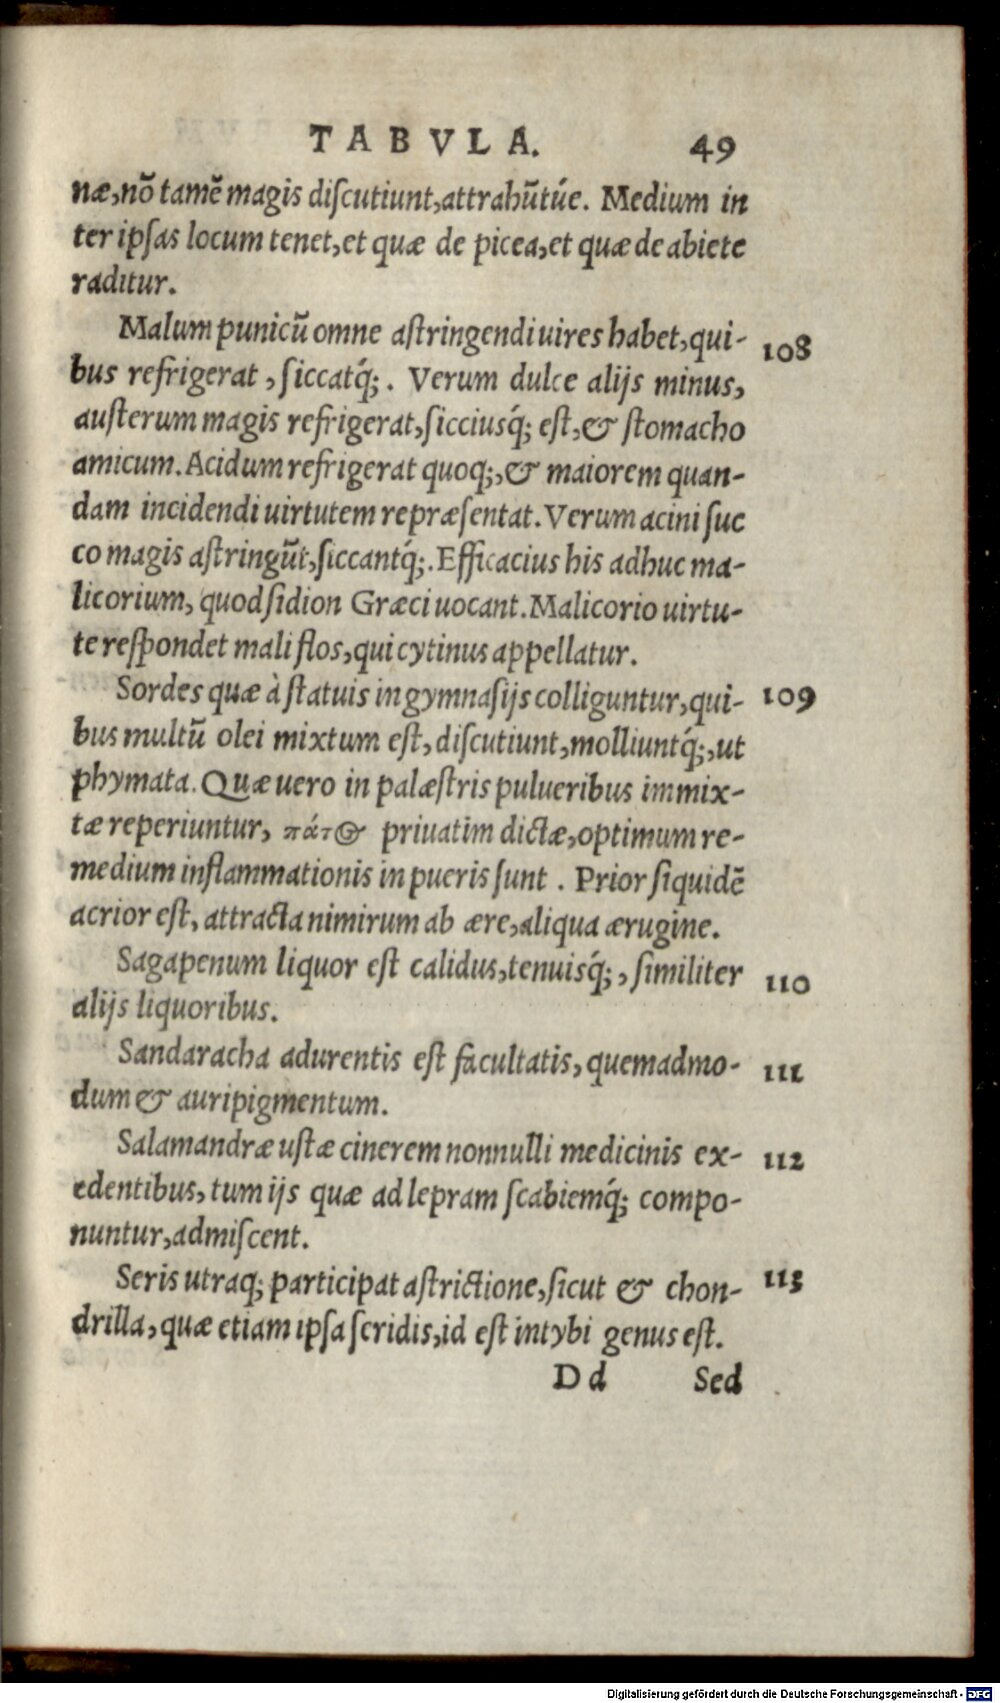 TABVLA. 49
næ,nō tamē magis diſcutiunt,attrahūtúe. Medium in
ter ipſas locum tenet,et quæ de picea,et quæ de abiete
raditur.
Malum punicū omne aſtringendi uires habet,qui- 108
bus refrigerat , ſiccatq́;. Verum dulce alijs minus,
auſterum magis refrigerat,ſicciusq́; eſt,& ſtomacho
amicum. Acidum refrigerat quoq;,& maiorem quan-
dam incidendi uirtutem repræſentat. Verum acini ſuc
co magis aſtringūt,ſiccantq́;. Efficacius his adhuc ma-
licorium, quod ſidion Græci uocant. Malicorio uirtu-
te reſpondet mali flos,qui cytinus appellatur.
Sordes quæ à ſtatuis in gymnaſijs colliguntur,qui- 109
bus multū olei mixtum eſt, diſcutiunt,molliuntq́;,ut
phymata. Quæ uero in palæſtris pulueribus immix-
tæ reperiuntur, πάτος priuatim dictæ,optimum re-
medium inflammationis in pueris ſunt . Prior ſiquidē
acrior eſt, attracta nimirum ab ære,aliqua ærugine.
Sagapenum liquor eſt calidus,tenuisq́; , ſimiliter 110
alijs liquoribus.
Sandaracha adurentis eſt facultatis, quemadmo- 111
dum & auripigmentum.
Salamandræ uſtæ cinerem nonnulli medicinis ex- 112
edentibus, tum ijs quæ ad lepram ſcabiemq́; compo-
nuntur,admiſcent.
Seris utraq; participat aſtrictione,ſicut & chon- 113
drilla,quæ etiam ipſa ſeridis,id eſt intybi genus eſt.
Dd Sed
Digitalisierung gefördert durch die Deutsche Forschungsgemeinschaft - DFG